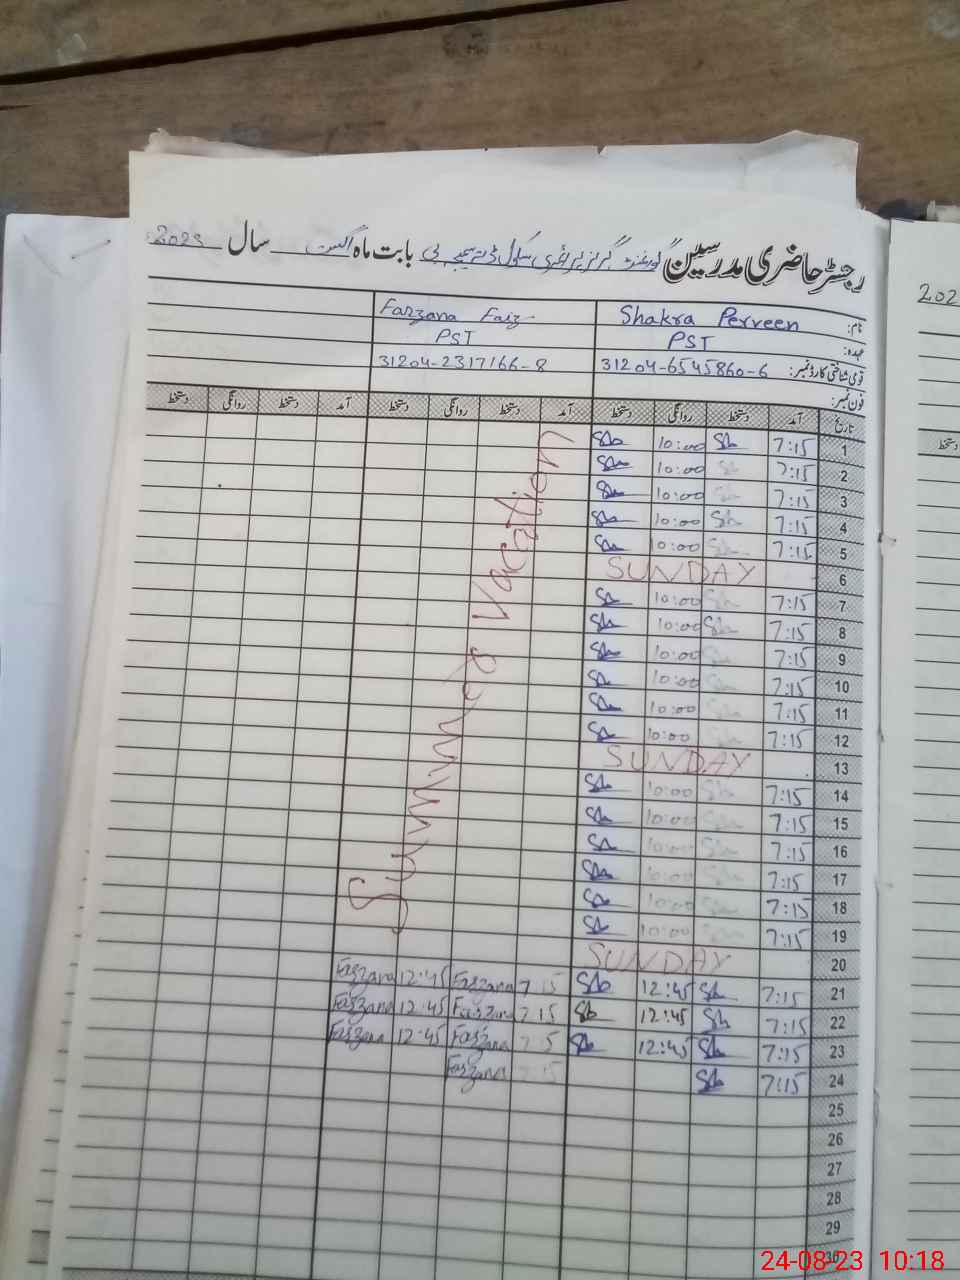 رجسٹر حاضری مدرسین گورنمنٹ گرلز پرائمری سکول بابت ماہ اگست سال 2023
نام: Shakra Perveen Farzana Faiz
عہدہ: PST PST
قومی شناختی کارڈ نمبر: 31204-6545860-6 31204-2317166-8
فون نمبر:
تاریخ آمد دستخط روانگی دستخط آمد دستخط روانگی دستخط آمد دستخط روانگی دستخط
1 7:15 Sh 10:00 Sh
2 7:15 Sh 10:00 Sh
3 7:15 Sh 10:00 Sh
4 7:15 Sh 10:00 Sh
5 7:15 Sh 10:00 Sh
6 SUNDAY
7 7:15 Sh 10:00 Sh
8 7:15 Sh 10:00 Sh
9 7:15 Sh 10:00 Sh
10 7:15 Sh 10:00 Sh
11 7:15 Sh 10:00 Sh
12 7:15 Sh 10:00 Sh
13 SUNDAY
14 7:15 Sh 10:00 Sh
15 7:15 Sh 10:00 Sh
16 7:15 Sh 10:00 Sh
17 7:15 Sh 10:00 Sh
18 7:15 Sh 10:00 Sh
19 7:15 Sh 10:00 Sh
Summer Vacation
20 SUNDAY
21 7:15 Sh 12:45 Sh 7:15 Farzana 12:45 Farzana
22 7:15 Sh 12:45 Sh 7:15 Farzana 12:45 Farzana
23 7:15 Sh 12:45 Sh 7:15 Farzana 12:45 Farzana
24 7:15 Sh 7:15 Farzana
25
26
27
28
29
30
202
دستخط
24-08-23 10:18